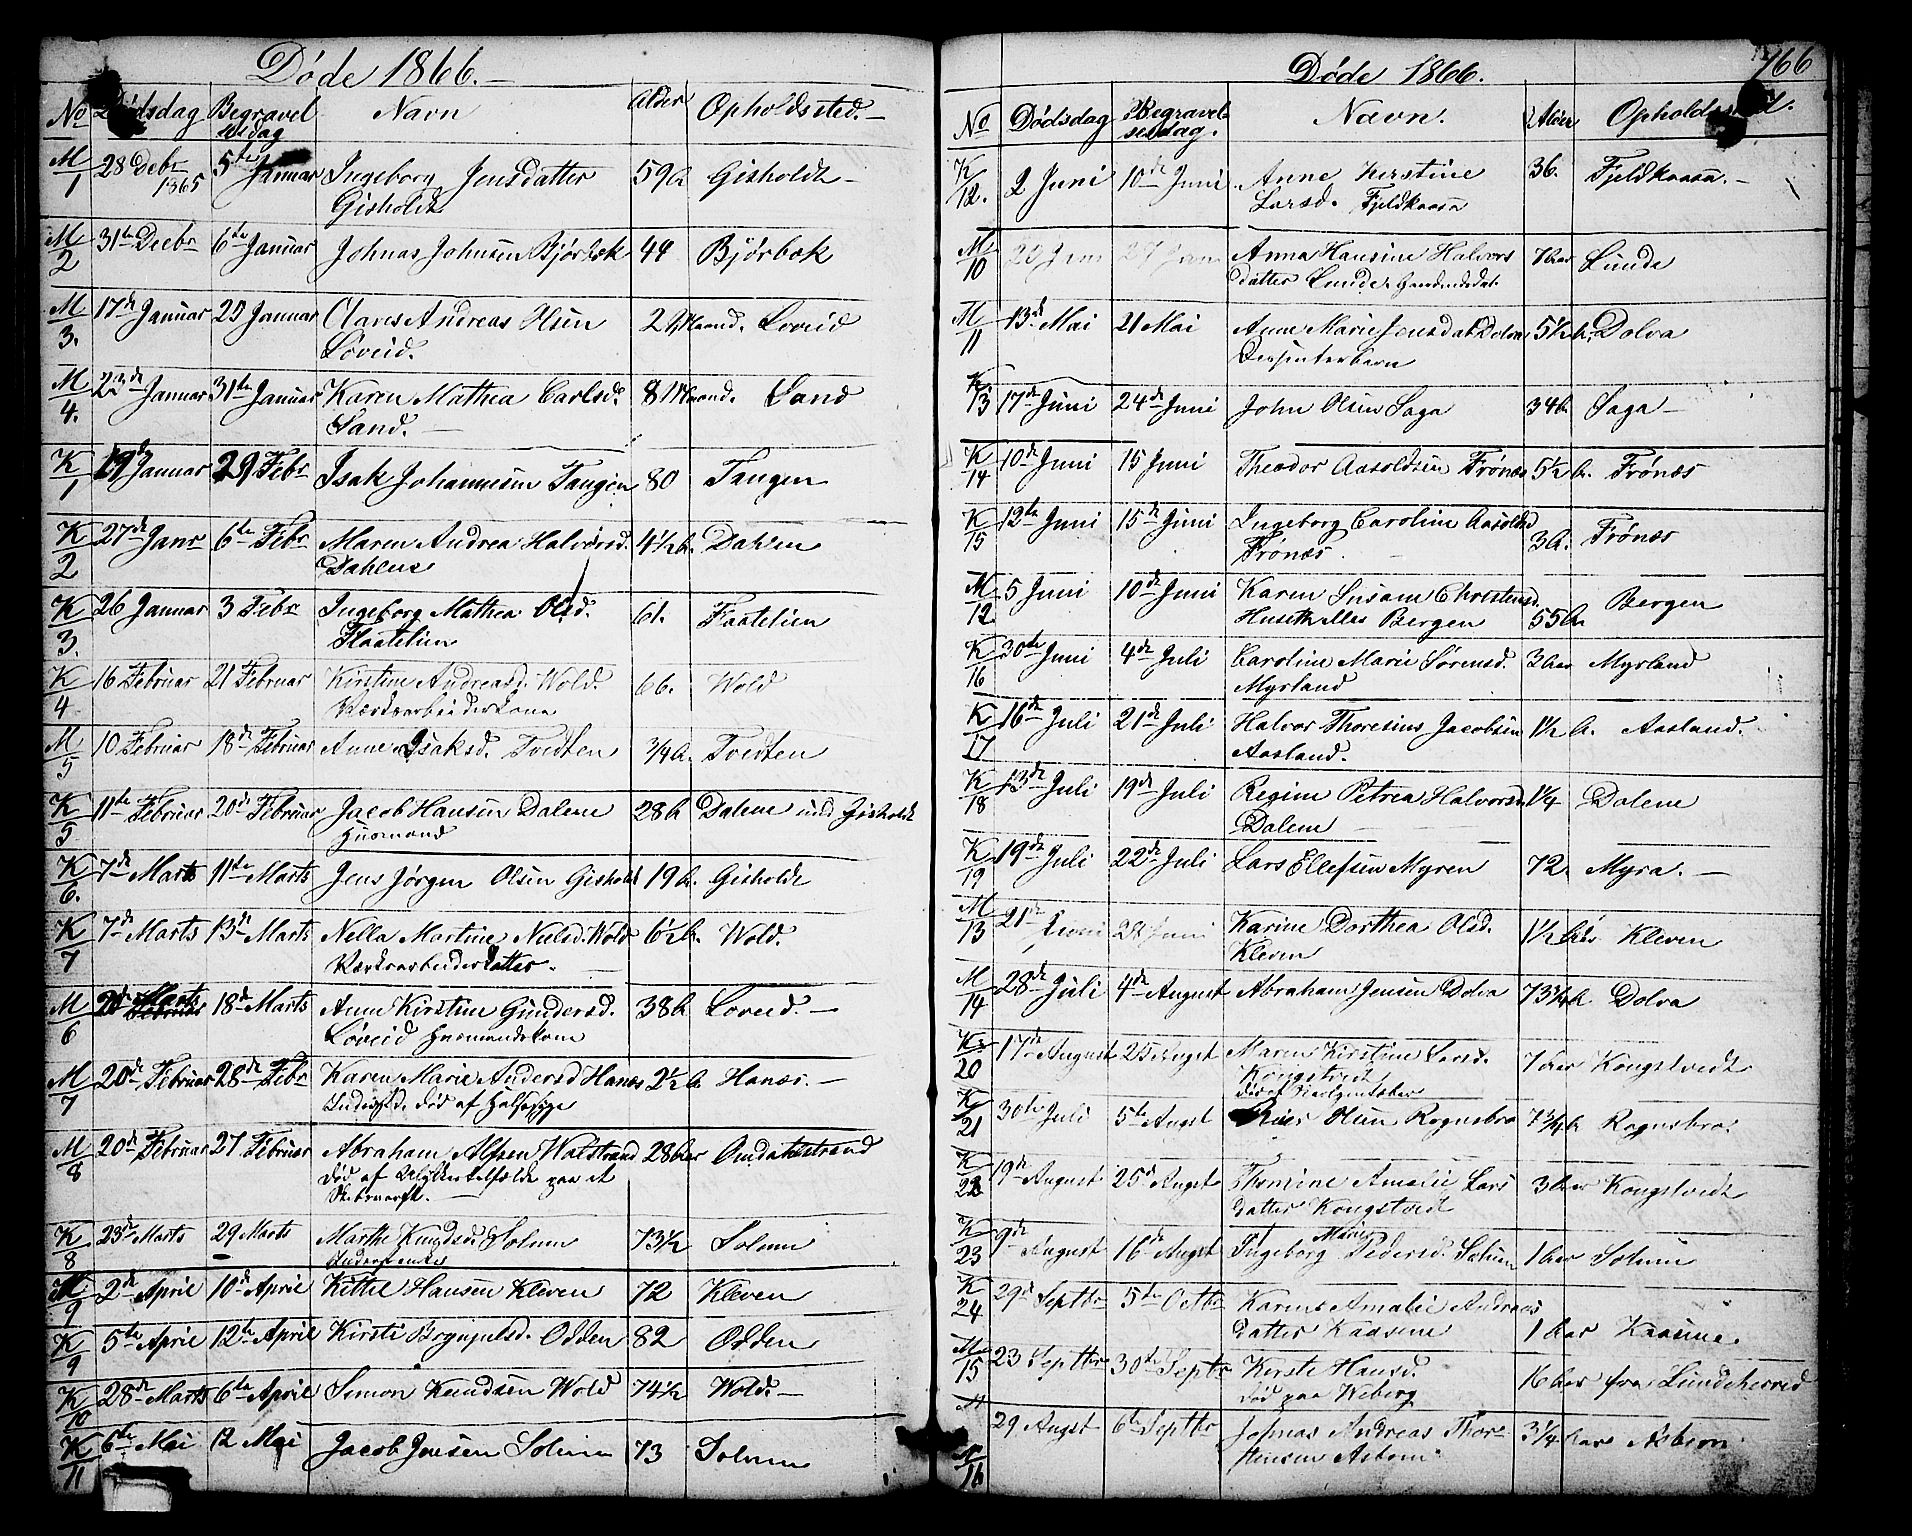 Døde 1866.
No Dødsdag Begravelsesdag Navn Alder Opholdssted.
M/1 28 Debr 1865 5te Januar Ingeborg Jensdatter 59 A Gisholdt
Gisholdt
M/2 31te Decbr 6te Januar Johnas Johnsen Bjørbæk 44 Bjørbæk
M/3. 17de Januar 25 Januar Claves Andreas Olsen 2 Maand. Løveid
Løveid.
M/4. 23de Januar 31te Januar Karen Mathea Carlsd. 8 Maand. Sand
Sand.
K/1 19de Januar 29 Febr Isak Johannesen Tangen 80 Tangen
K/2 27de Janr 6te Febr Maren Andrea Halvorsd. 4½ A. Dahlen
Dahlene
K/3. 26 Januar 3 Febr Ingeborg Mathea Olsd. 61. Flaatelien
Flaatelien
K/4 16 Februar 21 Februar Kirstine Andreasd. Wold. 66. Wold
Værksarbeiderkone
M/5 10 Februar 18de Februar Anne Isaksd. Tvedten 3/4 A. Tvedten
K/5 11te Februar 20de Februar Jacob Hansen Dalene 28 A Dalene und Gisholdt
Husmand
K/6. 7de Marts 11te Marts Jens Jørgen Olsen Gisholdt 19 A. Gisholdt
K/7 7de Marts 13de Marts Nella Martine Nielsd. Wold 6½ A. Wold.
Værksarbeiderdatter.
M/6 Marts 18de Marts Anne Kirstine Gundersd. 38 A Løveid.
Løveid Husmandskone
M/7 20de Februar 28de Febr Karen Marie Andersd Hanæs 2½ A. Hanæs.
død af Halsesyge
M/8 20de Februar 27 Februar Abraham Alfsen Walstrand 28 Aar Omdalsstrand
død af Ulykkestilfælde paa et
K/8 23de Marts 29 Marts Marthe Knudsd. Solum 73½ Solum
M/9 2de April 10de April Kittil Hansen Kleven 72 Kleven
K/9 5te April 12te April Kirsti Brynjulsd. Odden 82 Odden
K/10 28de Marts 6te April Simon Knudsen Wold 74½ Wold.
K/11 6te Mai 12 Mai Jacob Jensen Solum 73 Solum
Døde 1866. 166
No Dødsdag Begravelsesdag. Navn. Alder Opholdssted.
K/12. 2 Juni 10de Juni Anne Kirstine 36. Fjeldkaasa.
Larsd. Fjeldkaasa
M/10 Juni Juni Anna Hansine Halvors 7 Aar Lunde
datter Lunde
M/11 13de Mai 21 Mai Anne Marie Jensdat Dolva 5½ A. Dolva
K/13 17de Juni 24de Juni John Olsen Saga 34 A. Saga
K/14 10de Juni 15 Juni Theodor Aasoldsen Frønæs 5½ A. Frønæs
K/15 12te Juni 15de Juni Ingeborg Caroline Aasoldsd 3 A. Frønæs
Frønæs
M/12 5 Juni 10de Juni Karen Susane Christensd. 55 A Bergen
Bergen
K/16 30te Juni 4de Juli Caroline Marie Sørensd. 3 Aar Myrland
Myrland
K/17 16de Juli 21de Juli Halvor Thoresius Jacobsen 1½ A. Aasland.
Aasland.
K/18 13de Juli 19de Juli Regine Petrea Halvorsd 1¼ Dalene
Dalene
K/19 19de Juli 22de Juli Lars Ellefsen Myren 72. Myra.
M/13 21de Juni Juni Karine Dorthea Olsd. 1½ Aar Kleven
Kleven
M/14 28de Juli 4de August Abraham Jensen Dolva 73¼ A Dolva
K/20 17de August 25 Augst Maren Kirstine Larsd. 7 Aar Kongstvedt
Kongstvedt
K/21 30te Juli 5te Augst Olsen Rognsbro 7¾ A Rognsbro.
K/22 19de August 25de Augst Thomine Amalie Lars 3 Aar Kongstvedt
datter Kongstvedt
K/23 9de August 16de Augst Ingeborg Marie Pedersd. Solum 1 Aar Solum
K/24 29de Septbr 5te Octbr Karine Amalie Andreas
datter Kaasene 1 Aar Kaasene.
M/15 23 Septbr 30te Septbr Kirste Hansd. 16 Aar fra Lundeherred
død paa Weberg
M/16 29 Augst 6te Septbr Johnas Andreas Thor- 3¼ Aar Asbom
stensen Asbom